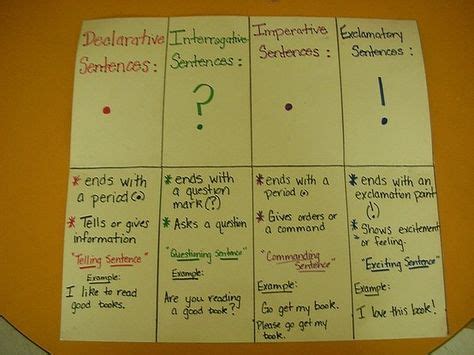 Declarative
Sentences:
.
Interrogative
Sentences:
?
Imperative
Sentences:
.
Exclamatory
Sentences:
!
* ends with
a period (.)
* Tells or gives
information
"Telling Sentence"
Example:
I like to read
good books.
* ends with
a question
mark (?)
* Asks a question
"Questioning Sentence"
Example:
Are you reading
a good book?
* ends with a
period (.)
* Gives orders or
a command
"Commanding
Sentence"
Example:
Go get my book.
Please go get my
book.
* ends with an
exclamation point
(!)
* Shows excitement
or feeling.
"Exciting Sentence"
Example:
I love this book!